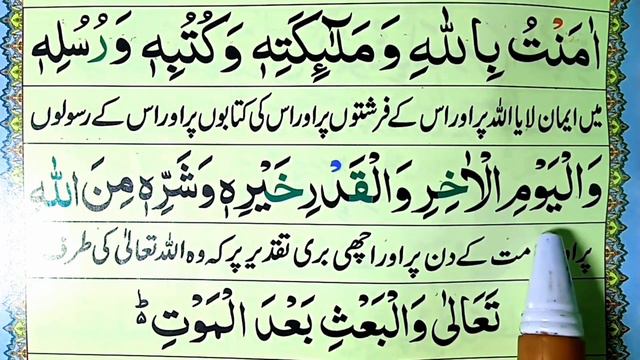 اٰمَنْتُ بِاللّٰهِ وَ مَلٰٓئِكَتِهٖ وَكُتُبِهٖ وَرُسُلِهٖ
میں ایمان لایا اللہ پر اور اس کے فرشتوں پر اور اس کی کتابوں پر اور اس کے رسولوں
وَالْيَوْمِ الْاٰخِرِ وَالْقَدْرِ خَيْرِهٖ وَشَرِّهٖ مِنَ اللّٰهِ
پر اور کے دن پر اور اچھی بری تقدیر پر کہ وہ اللہ تعالیٰ کی طرف
تَعَالٰى وَالْبَعْثِ بَعْدَ الْمَوْتِ ؕ